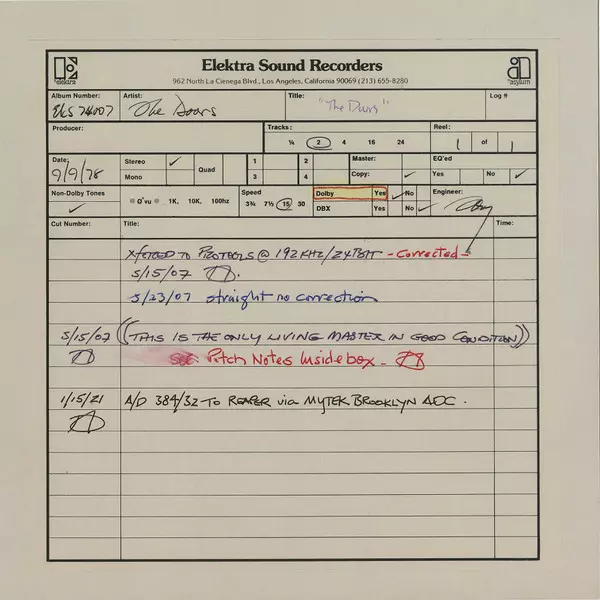 elektra
Elektra Sound Recorders
962 North La Cienega Blvd., Los Angeles, California 90069 (213) 655-8280
asylum
Album Number: EKS 74007
Artist: The Doors
Title: "The Doors"
Log #
Producer:
Tracks: ¼ 2 4 16 24
Reel: 1 of 1
Date: 9/9/78
Stereo ✓
Mono
Quad
1 2 3 4
Master:
Copy: ✓
EQ'ed
Yes No ✓
Non-Dolby Tones ✓
O'vu 1K, 10K, 100hz
Speed
3¾ 7½ 15 30
Dolby Yes ✓ No
DBX Yes No ✓
Engineer:
Cut Number: Title: Time:
Xferred to Protools @ 192KHz/24Bit - Corrected -
5/15/07
5/23/07 straight no correction
5/15/07 ((THIS IS THE ONLY LIVING MASTER IN GOOD CONDITION))
See Pitch Notes Inside box -
1/15/21 A/D 384/32 TO REAPER via MYTEK BROOKLYN ADC.